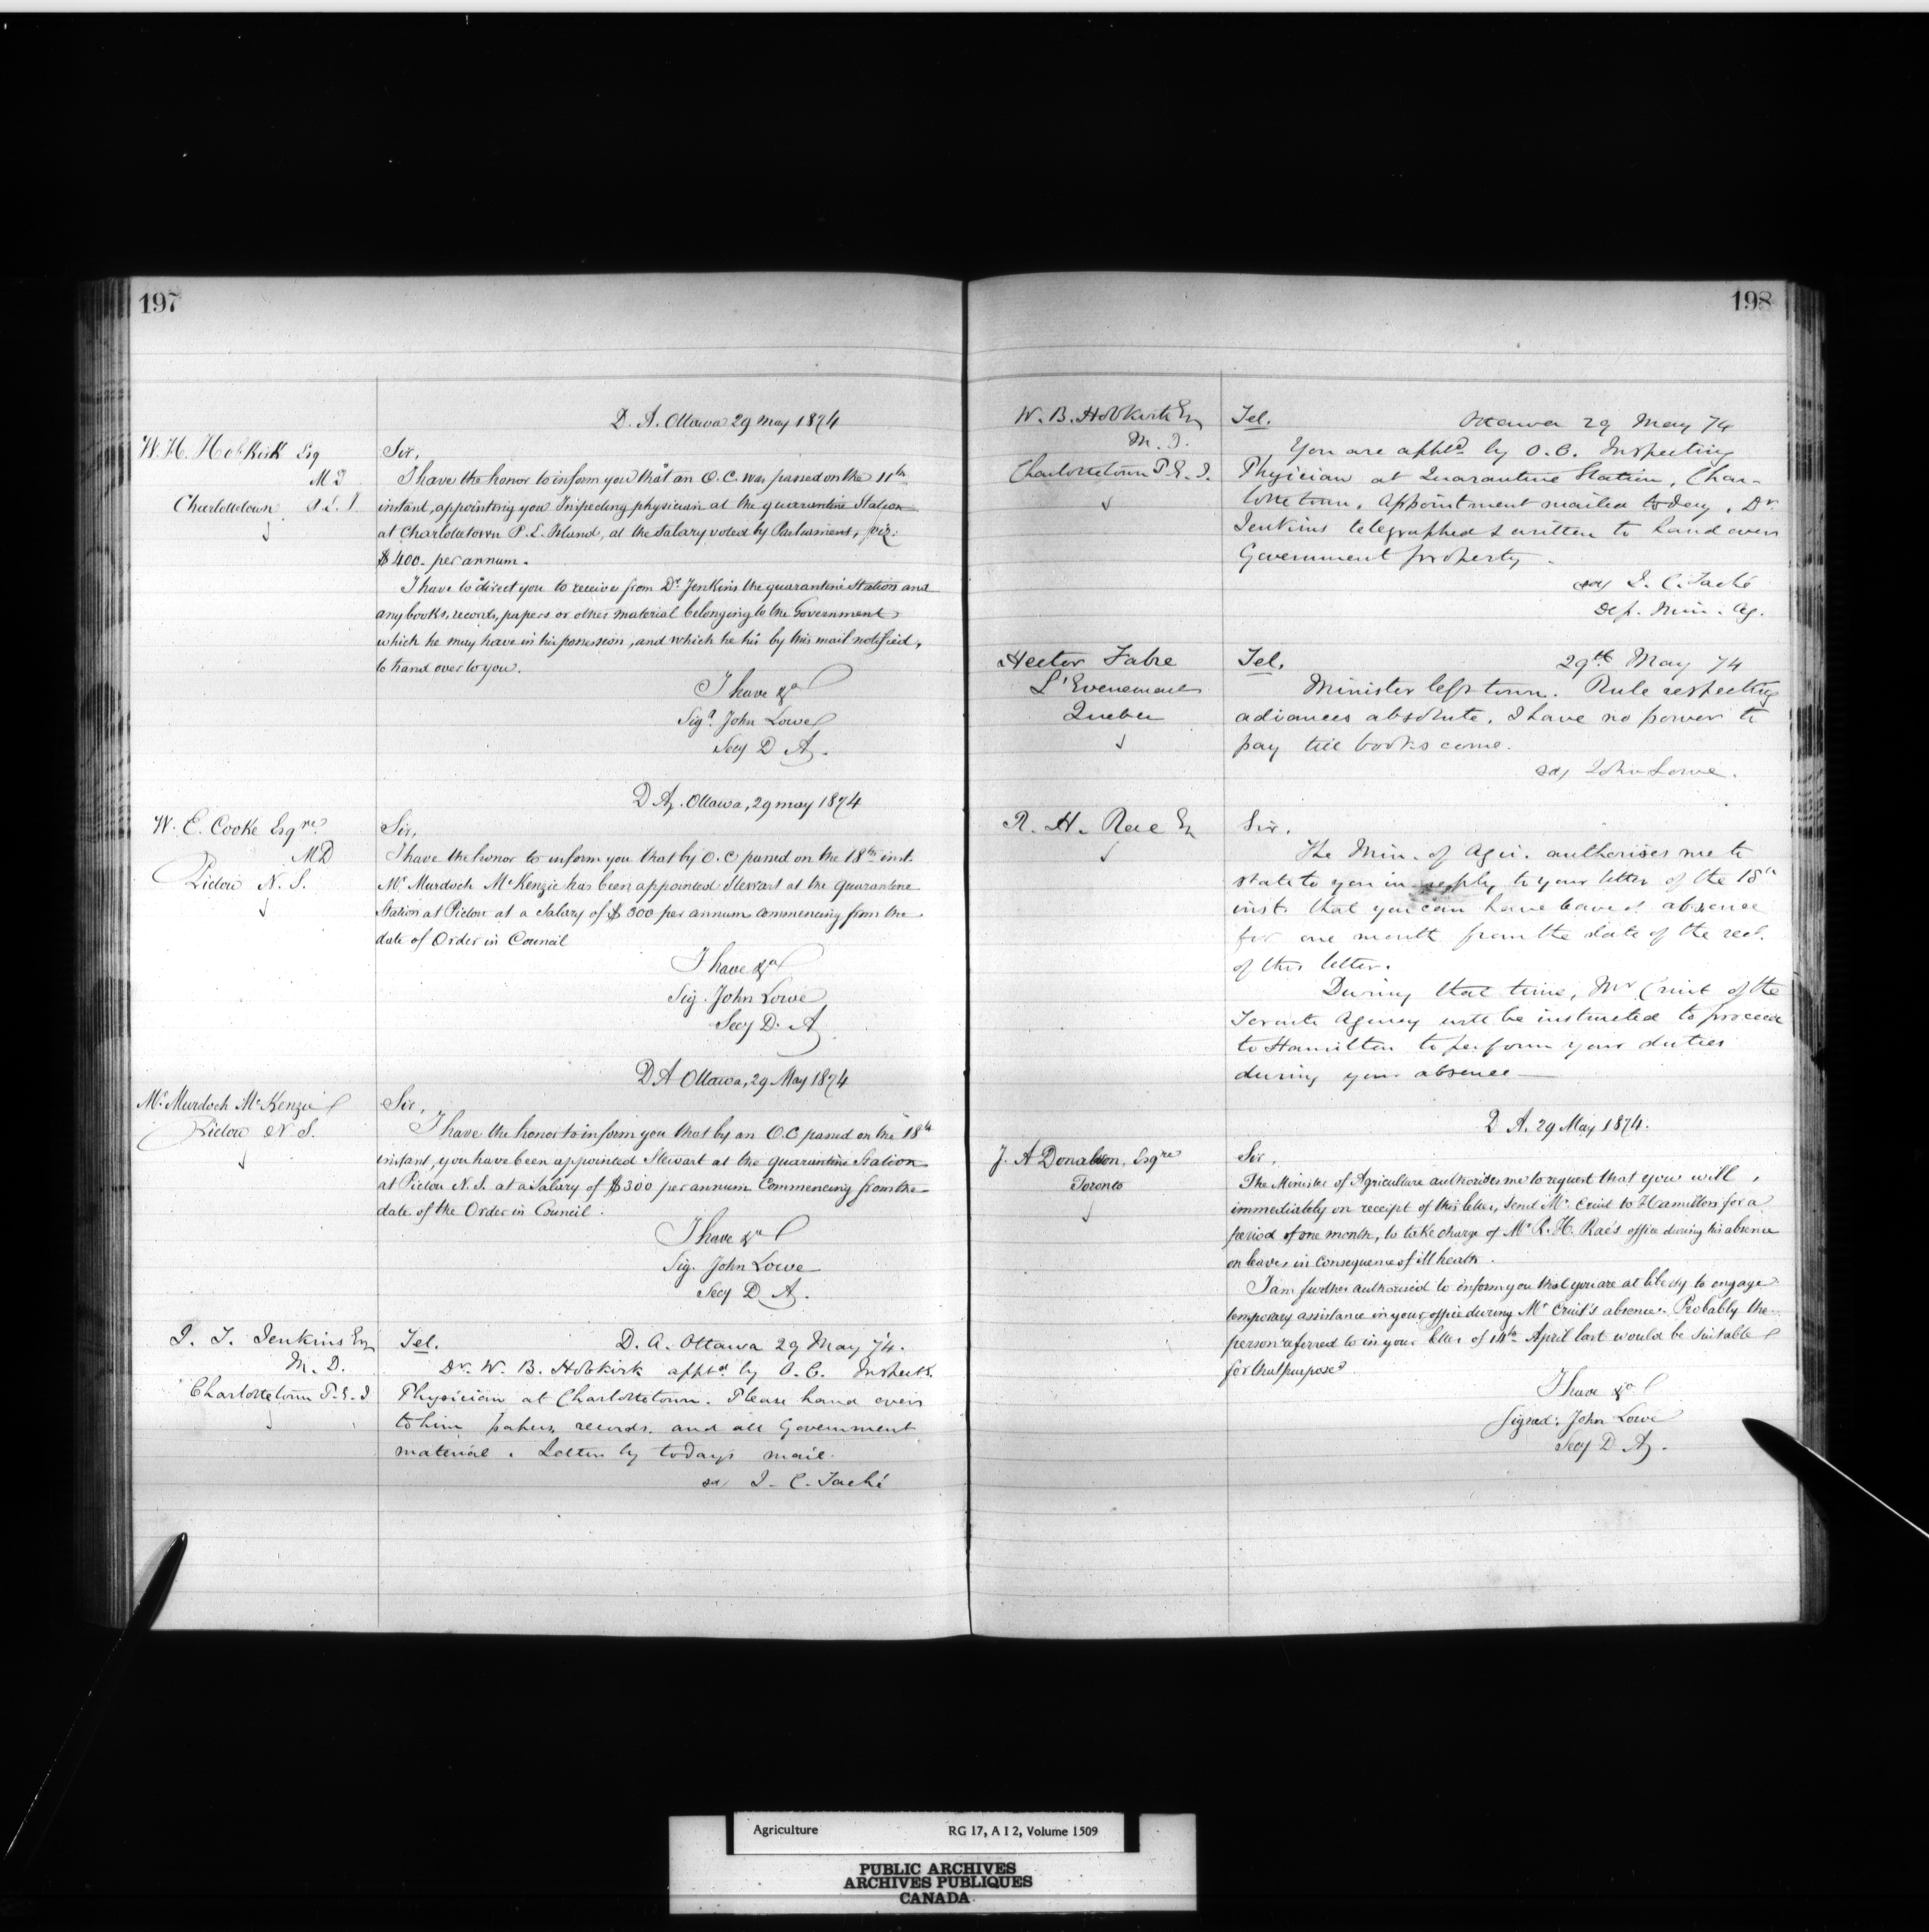 197
D. A. Ottawa 29 May 1874
W. H. Hobkirk Esq
M D
Charlottetown P. E. I.
Sir,
I have the honor to inform you that an O. C. was passed on the 11th
instant, appointing you Inspecting physician at the quarantine Station
at Charlottetown P. E. Island, at the Salary voted by Parliament, viz:
$400. per annum.
I have to direct you to receive from Dr Jenkins the quarantine Station and
any books, records, papers or other material belonging to the Government
which he may have in his possession, and which he is by this mail notified,
to hand over to you.
I have &a
Sigd John Lowe
Secy D A.
D A. Ottawa, 29 May 1874
W. E. Cooke Esqre
M D
Pictou N. S.
Sir,
I have the honor to inform you that by O. C passed on the 18th inst.
Mr Murdoch McKenzie has been appointed Stewart at the Quarantine
Station at Pictou at a Salary of $300 per annum commencing from the
date of Order in Council
I have &a
Sig. John Lowe
Secy D. A.
D A Ottawa, 29 May 1874
Mr Murdoch McKenzie
Pictou N. S.
Sir,
I have the honor to inform you that by an O. C passed on the 18th
instant, you have been appointed Stewart at the quarantine Station
at Pictou N. S. at a Salary of $300 per annum Commencing from the
date of the Order in Council.
I have &a
Sig. John Lowe
Secy D A.
J. T. Jenkins Esq
M. D.
Charlottetown P. E. I
Tel. D. A. Ottawa 29 May 74.
Dr. W. B. Hobkirk apptd by O. C. Inspectg
Physician at Charlottetown. Please hand over
to him papers, records, and all Government
material. Letter by todays mail.
sd J. C. Taché
198
W. B. Hobkirk Esq
M. D.
Charlottetown P. E. I.
Tel. Ottawa 29 May 74
You are apptd by O. C. Inspecting
Physician at Quarantine Station, Char-
lottetown. Appointment mailed today. Dr
Jenkins telegraphed & written to hand over
Government property.
sd J. C. Taché
Dep. Min. Ag.
Hector Fabre
L'Evenement
Quebec
Tel. 29th May 74
Minister left town. Rule respecting
advances absolute. I have no power to
pay till books come.
sd John Lowe.
R. H. Rae Esq
Sir.
The Min. of Agri. authorises me to
state to you in reply to your letter of the 18th
inst. that you can have leave of absence
for one month from the date of the rect.
of this letter.
During that time, Mr Cruit of the
Toronto Agency will be instructed to proceed
to Hamilton to perform your duties
during your absence —
D. A. 29 May 1874.
J. A Donaldson, Esqre
Toronto
Sir,
The Minister of Agriculture authorises me to request that you will,
immediately on receipt of this letter, send Mr Cruit to Hamilton for a
period of one month, to take charge of Mr R. H. Rae's office during his absence
on leave in consequence of ill health.
I am further authorised to inform you that you are at liberty to engage
temporary assistance in your office during Mr Cruit's absence. Probably the
person referred to in your letter of 14th April last would be suitable
for that purpose
I have &a
Signed: John Lowe
Secy D. A.
Agriculture RG 17, A I 2, Volume 1509
PUBLIC ARCHIVES
ARCHIVES PUBLIQUES
CANADA